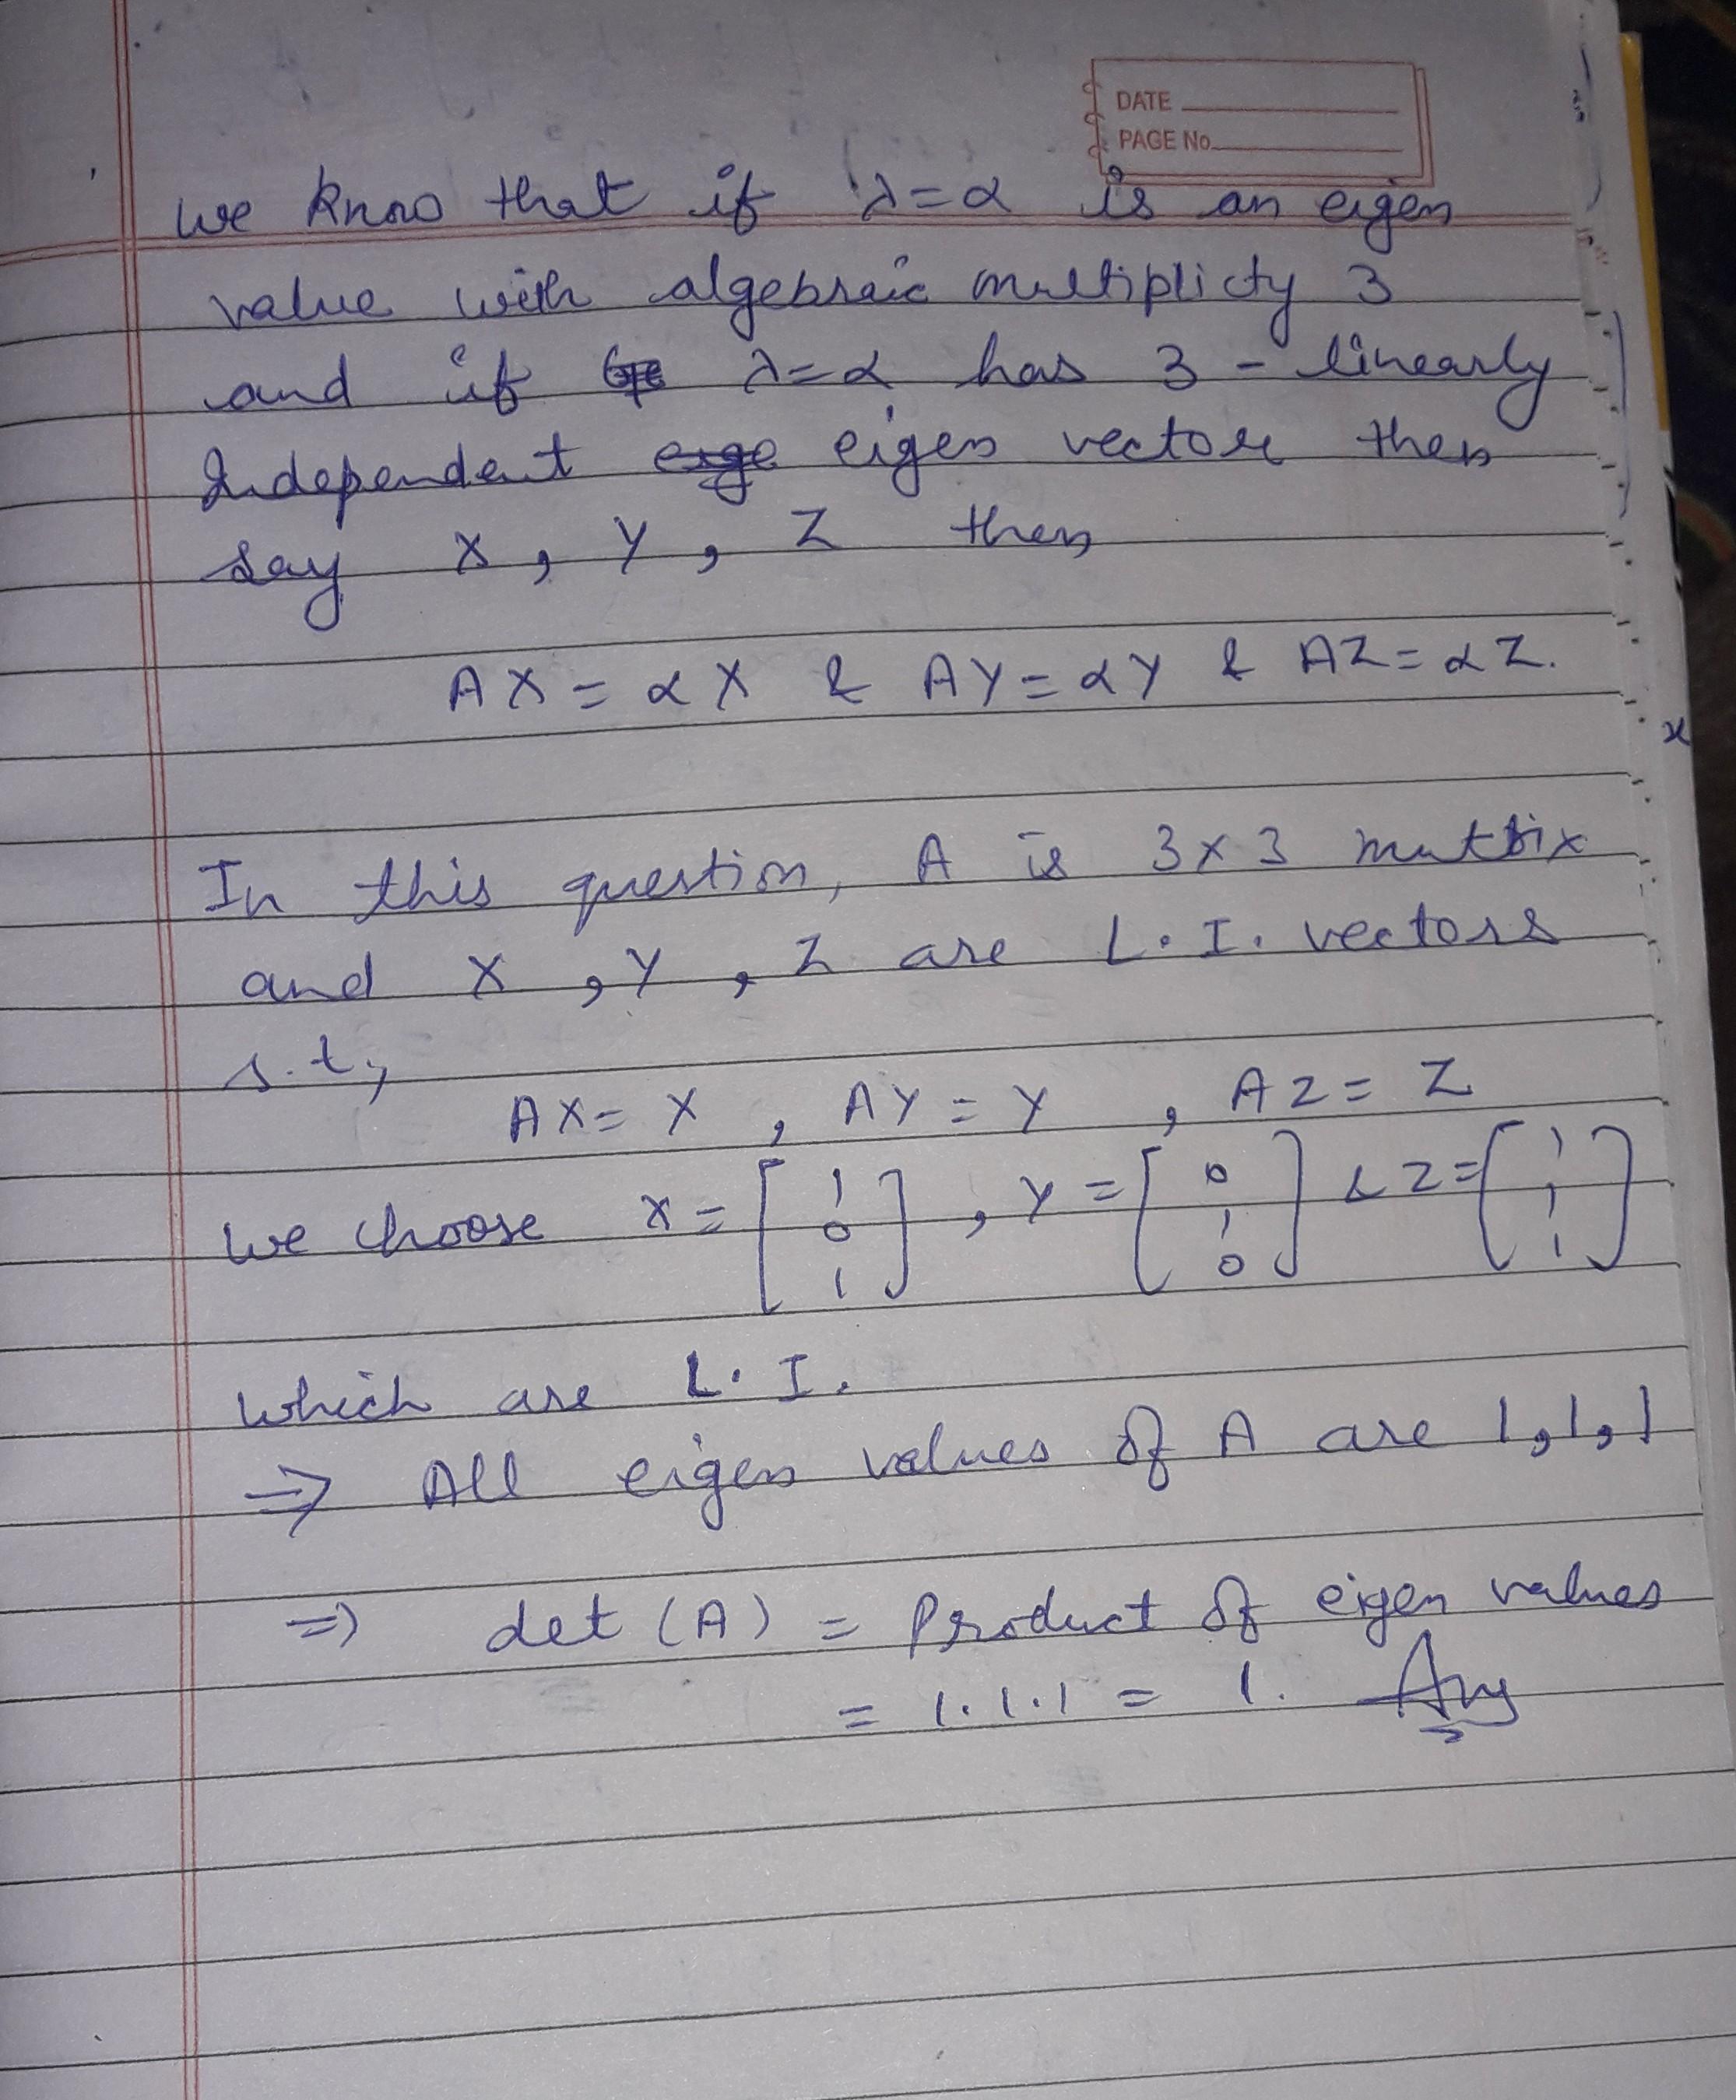 DATE
PAGE No.
we know that if λ=α is an eigen
value with algebraic multiplicty 3
and if λ=α has 3 - linearly
Independent eigen vectors then
say X, Y, Z then
AX = αX & AY = αY & AZ = αZ.
In this question, A is 3×3 matrix
and X, Y, Z are L.I. vectors
s.t,
AX = X, AY = Y, AZ = Z
we choose X = [1 0 1], Y = [0 1 0] & Z = [1 1 1]
which are L.I.
⇒ All eigen values of A are 1,1,1
⇒ det (A) = Product of eigen values
= 1.1.1 = 1. Ans
x